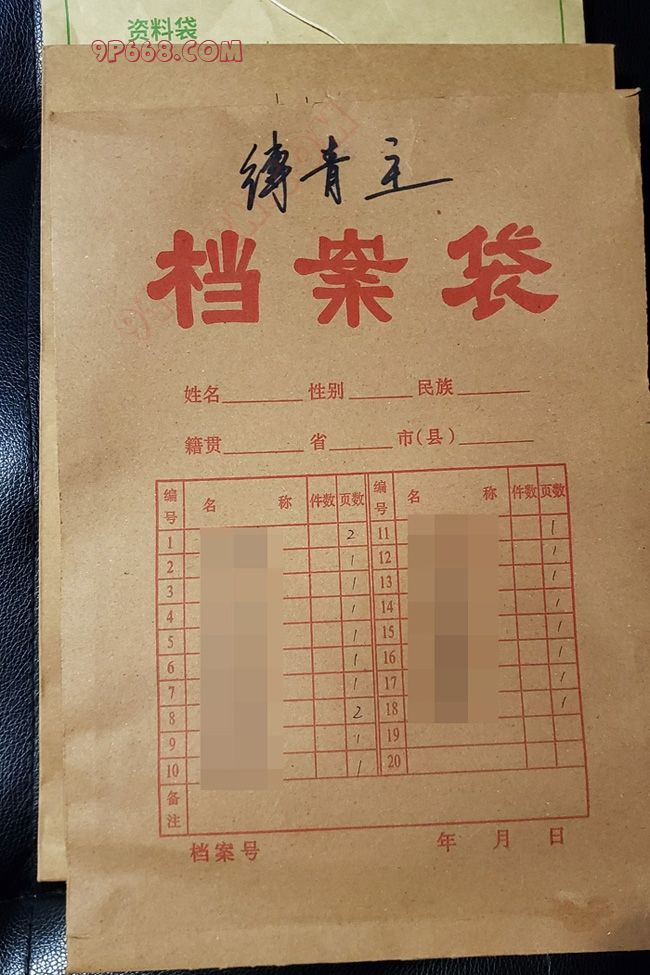 资料袋
9P668.COM
傅青主
档案袋
姓名 性别 民族
籍贯 省 市(县)
编号 名称 件数 页数 编号 名称 件数 页数
1 2 11 1
2 1 12 1
3 1 13 1
4 1 14 1
5 1 15 1
6 1 16 1
7 1 17 1
8 2 18 1
9 1 19
10 1 20
备注
档案号 年 月 日